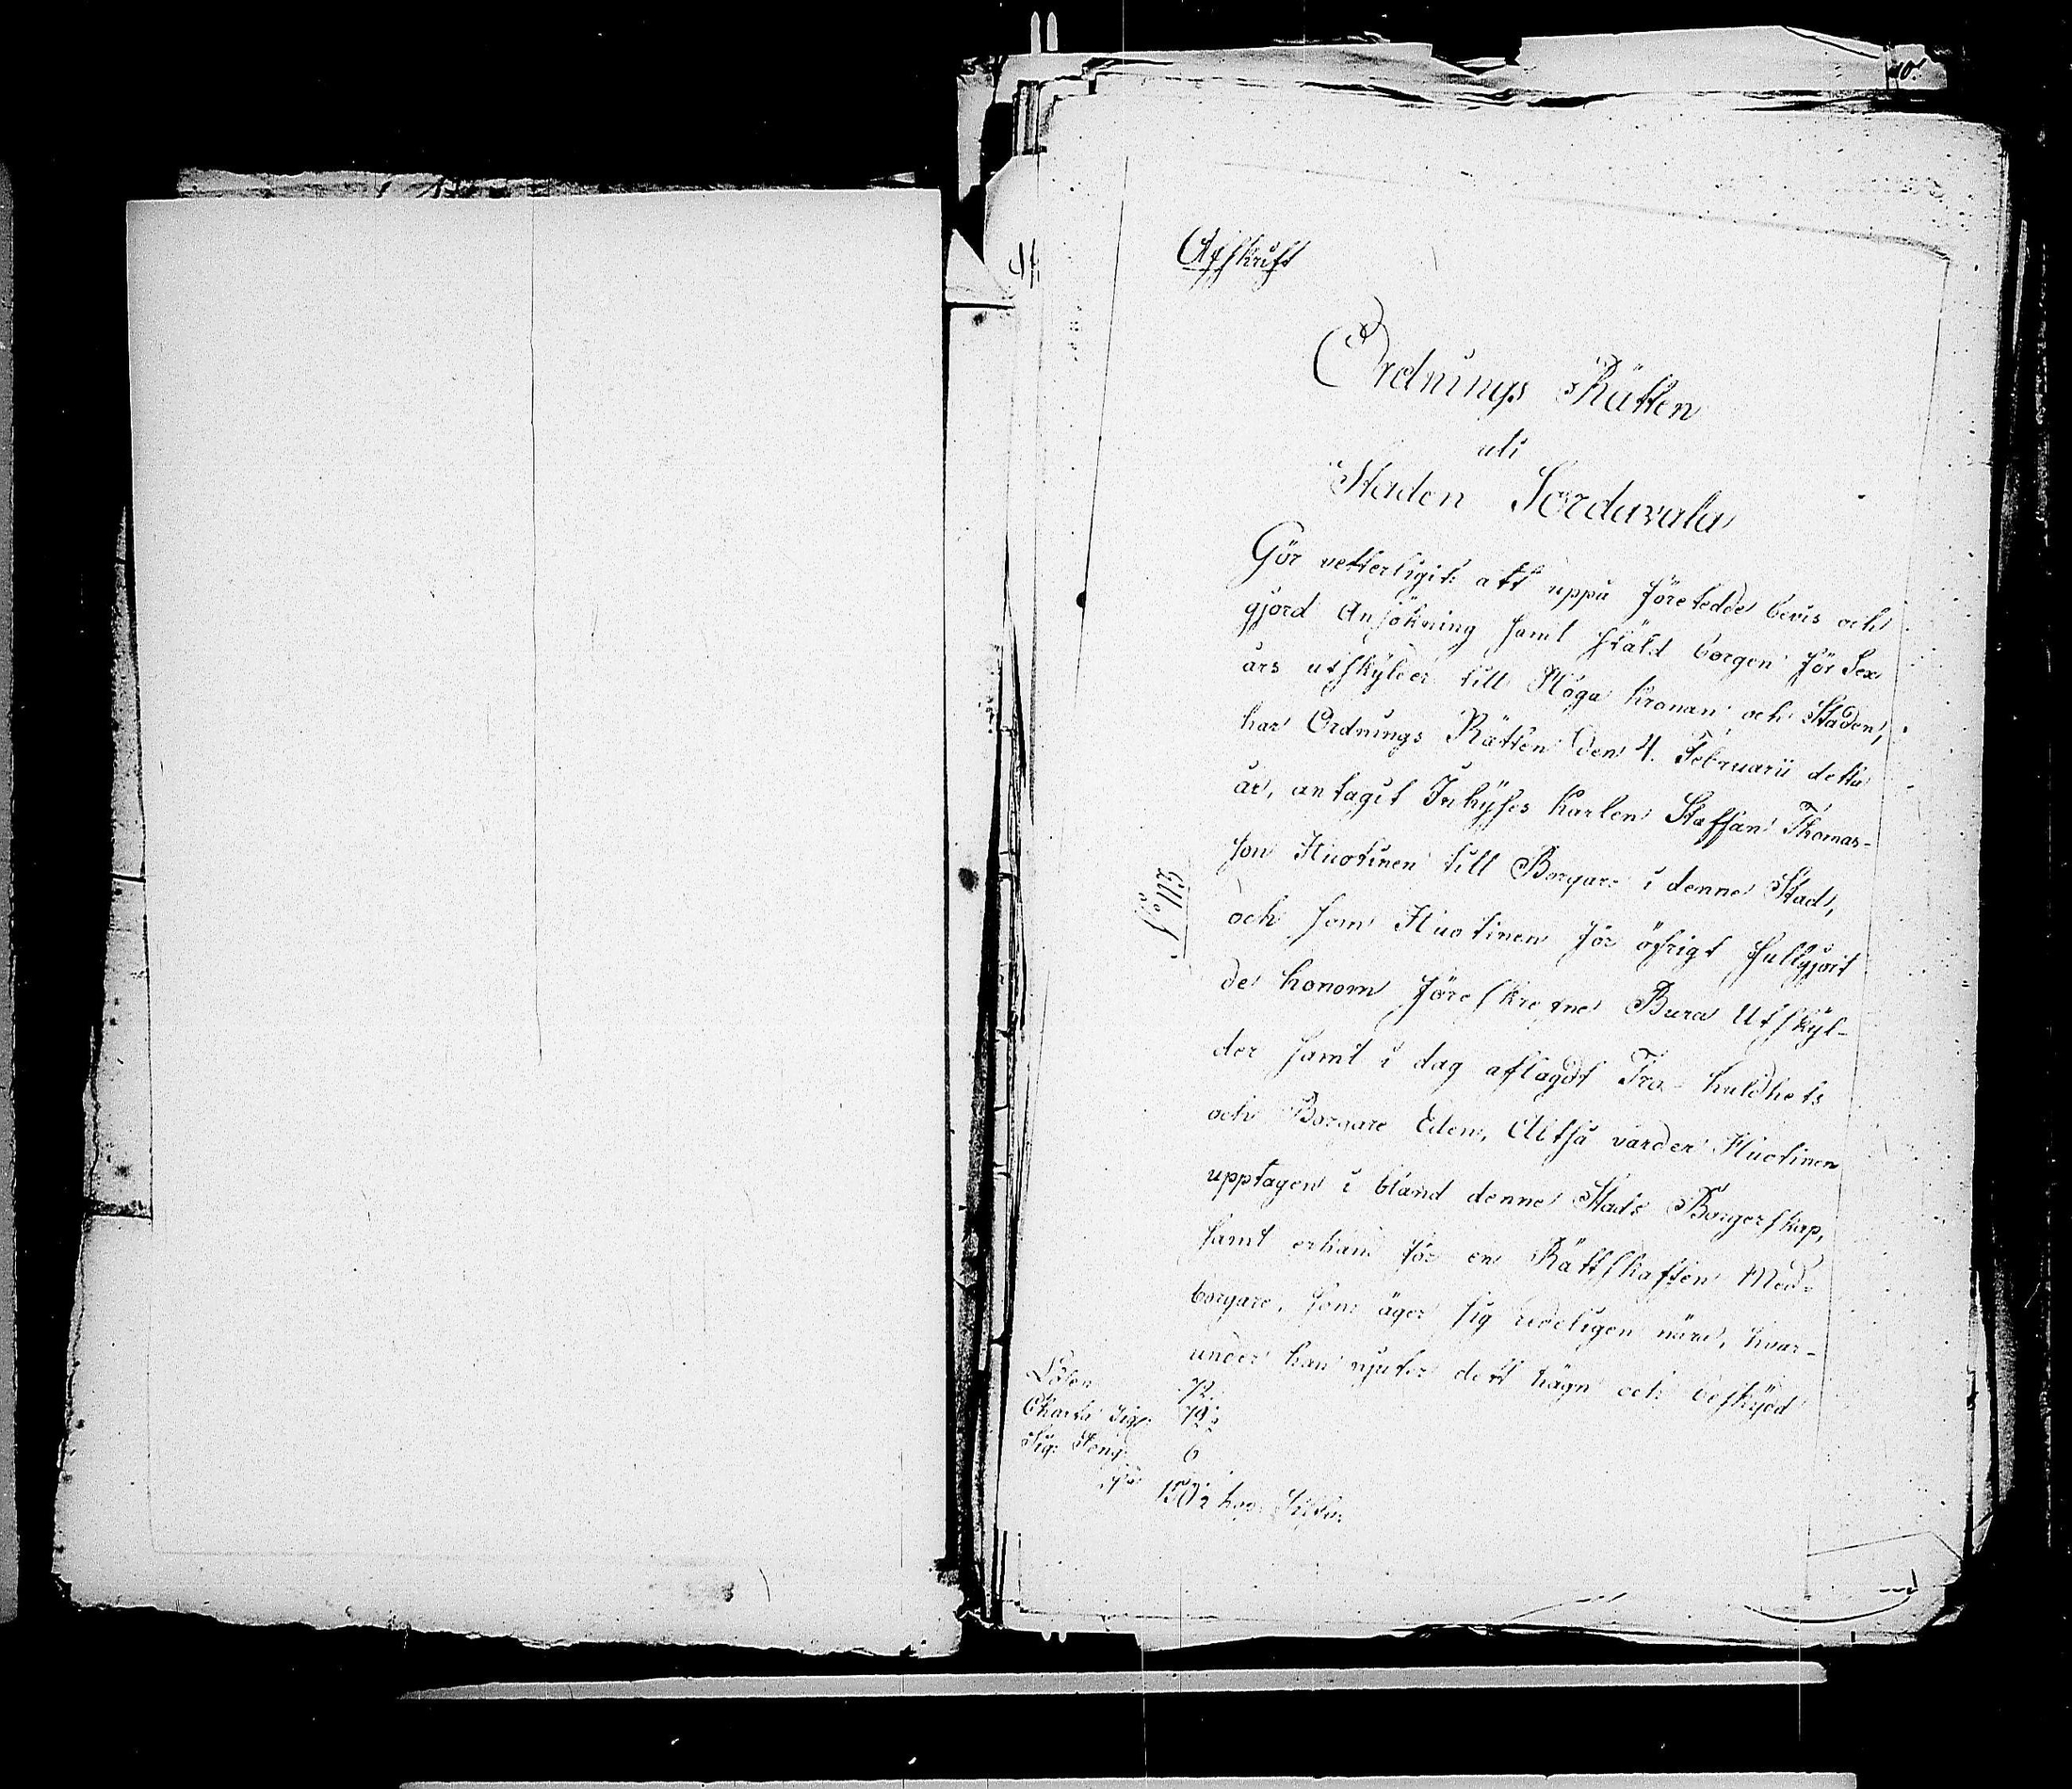 10.
Afskrift
Ordnings Rätten
uti
Staden Sordavala
Gör vetterligit att uppå företedde bevis och
gjord Ansökning samt stäld borgen för Sex
års utskylder till Höga Kronan och Staden,
har Ordnings Rätten den 4. Februarii detta
år, antagit Inhyses Karlen Staffan Thomas-
son Huotinen till Borgare i denne Stad,
och som Huotinen för öfrigt fullgjort
de honom föreskrefne Bura Utskyl-
der samt i dag aflagdt Tro- huldhets
och Borgare Eden, Altså varder Huotinen
upptagen i bland denne Stads Borgerskap,
samt erkänd för en Rättskaffen Med-
borgare, som äger sig redeligen nära, hvar-
under han njuter dett hägn och beskydd
Lösen 72.
Charta Sigl: 79½
Sig: Peng: 6
157½ kop: Silfver